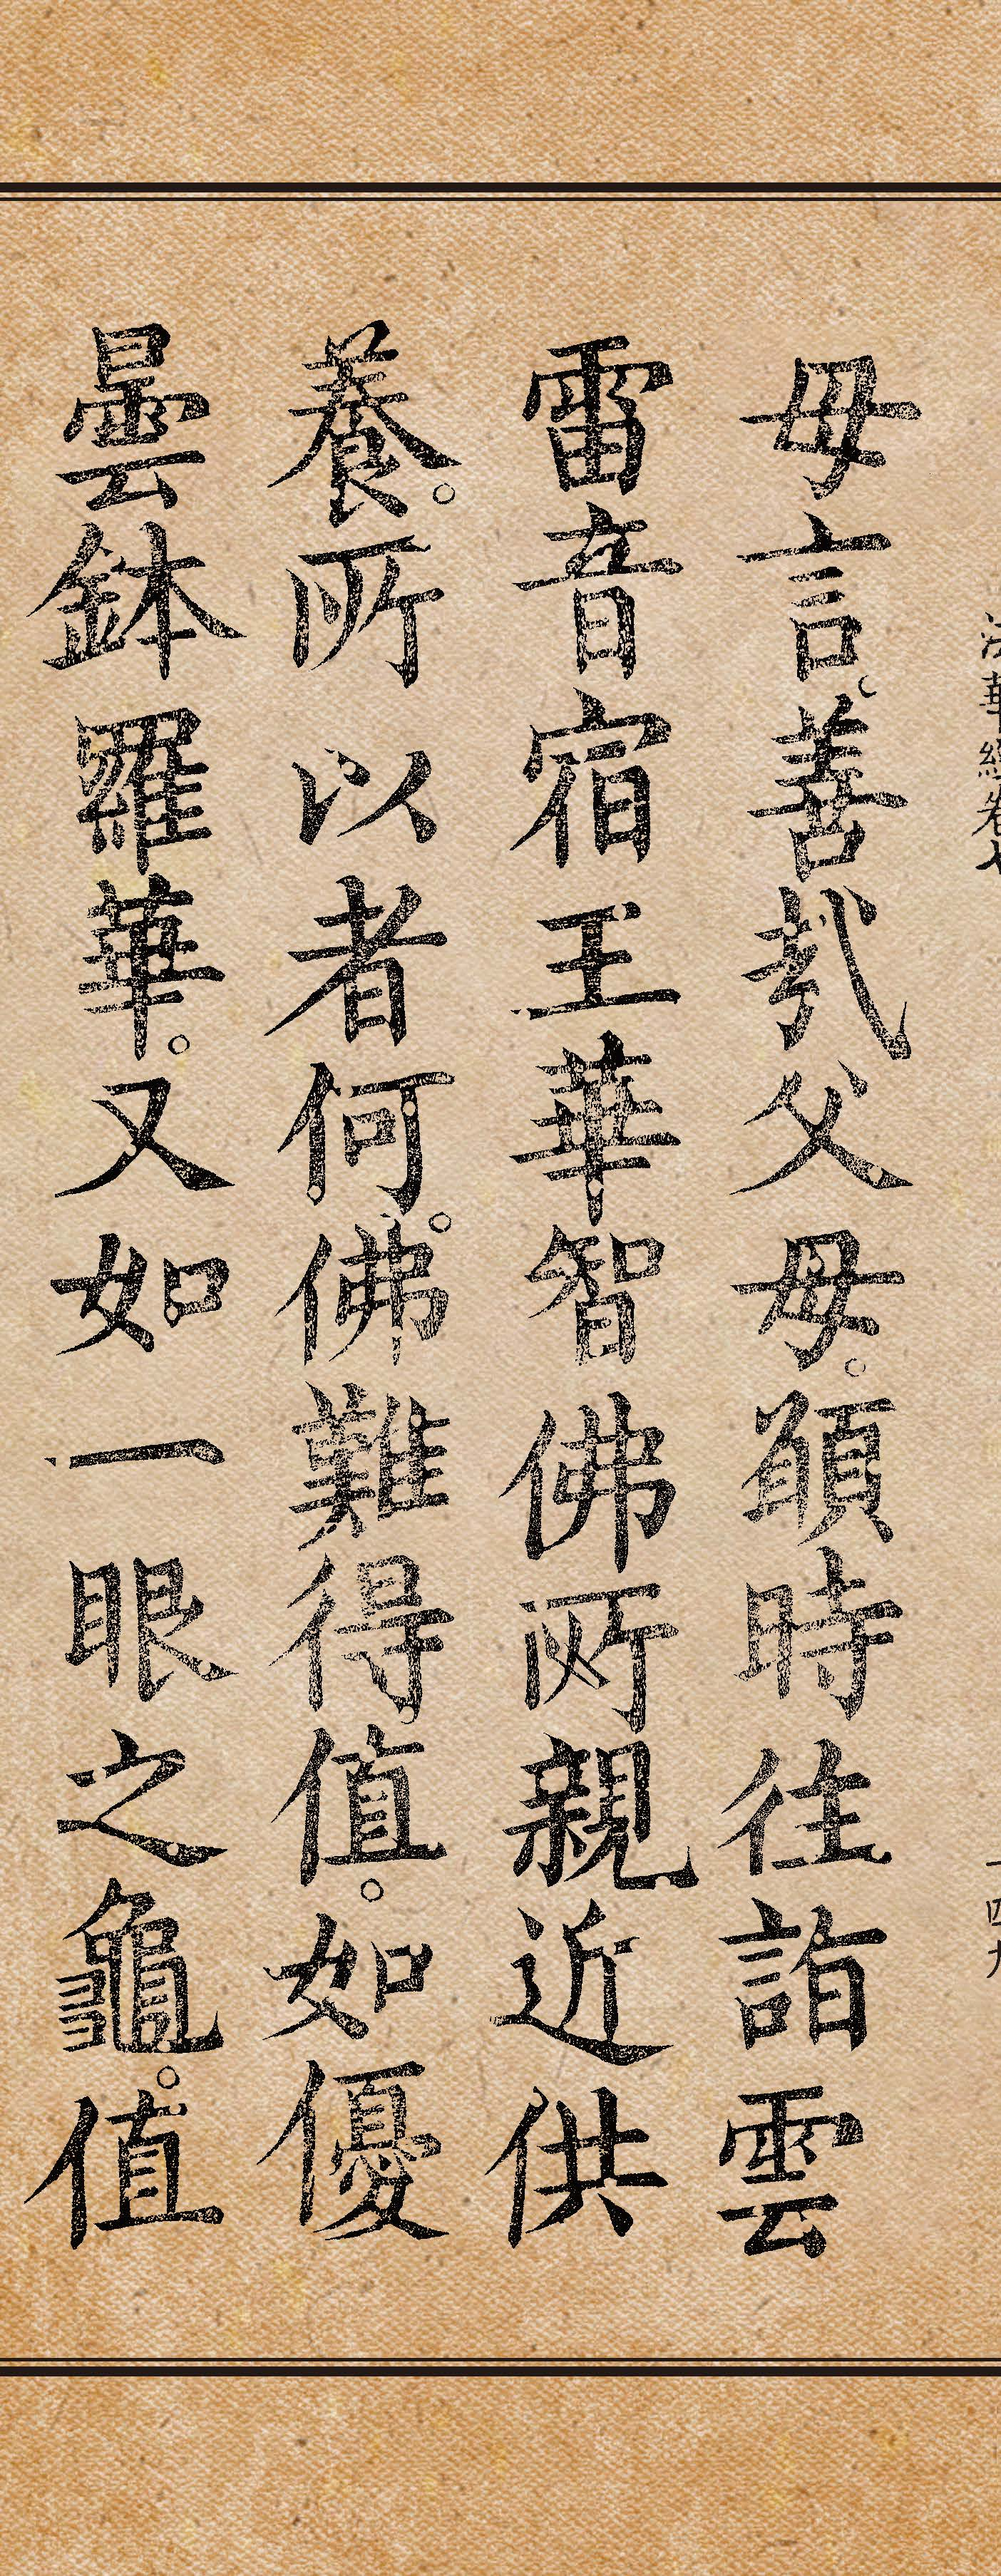 法華經卷七
一四九
母言。善哉父母。願時往詣雲
雷音宿王華智佛所親近供
養。所以者何。佛難得值。如優
曇鉢羅華。又如一眼之龜。值